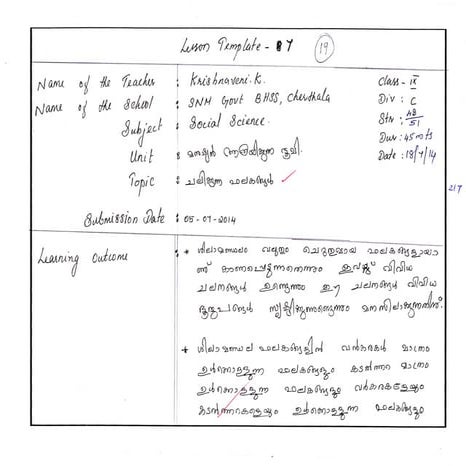 Lesson Template - 87 19
Name of the Teacher : Krishnaveni.K. Class - IX
Name of the School : SNM Govt BHSS, Cherthala Div : C
Subject : Social Science. Str : 48/51
Dur : 45 mts
Unit : ഭൂമി. Date : 18/7/14
Topic : ചലിക്കുന്ന ഫലകങ്ങൾ
21/7
Submission Date : 05-07-2014
Learning Outcome : * ശിലാമണ്ഡലം വലുതും ചെറുതുമായ ഫലകങ്ങളായാ
ണ് കാണപ്പെടുന്നതെന്നും ഇവയ്ക്ക് വിവിധ
ചലനങ്ങൾ ഉണ്ടെന്നും ഈ ചലനങ്ങൾ വിവിധ
ഭൂരൂപങ്ങൾ സൃഷ്ടിക്കുന്നുണ്ടെന്നും മനസിലാക്കുന്നതിന്.
* ശിലാമണ്ഡല ഫലകങ്ങളിൽ വൻകരകൾ മാത്രം
ഉൾക്കൊള്ളുന്ന ഫലകങ്ങളും കടൽത്തറ മാത്രം
ഉൾക്കൊള്ളുന്ന ഫലകങ്ങളും വൻകരകളേയും
കടൽത്തറകളെയും ഉൾക്കൊള്ളുന്ന ഫലകങ്ങളും